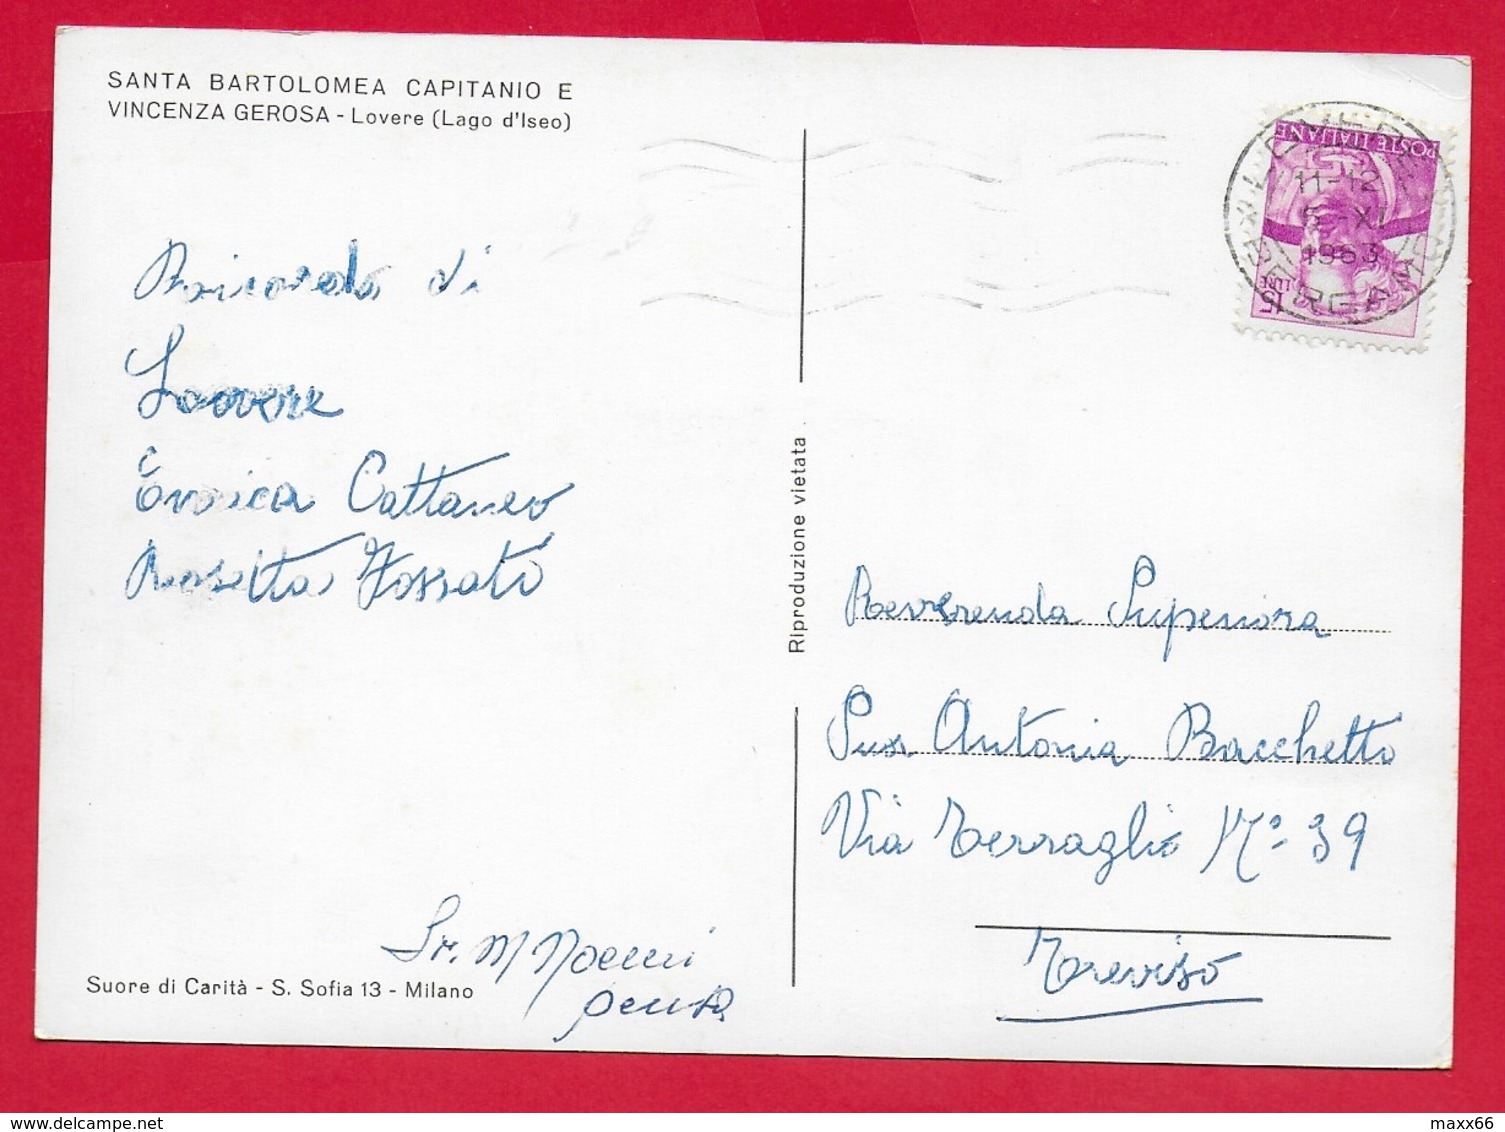 SANTA BARTOLOMEA CAPITANIO E
VINCENZA GEROSA - Lovere (Lago d'Iseo)
POSTE ITALIANE
LIRE 15
LOVERE
11-12
5 -XI
1963
BERGAMO
Ricordo di
Lovere
Enrica Cattaneo
Rosetta Fossato
Riproduzione vietata
Reverenda Superiora
Suor Antonia Bacchetto
Via Terraglio N° 39
Treviso
Sr. M
Suore di Carità - S. Sofia 13 - Milano
maxx66